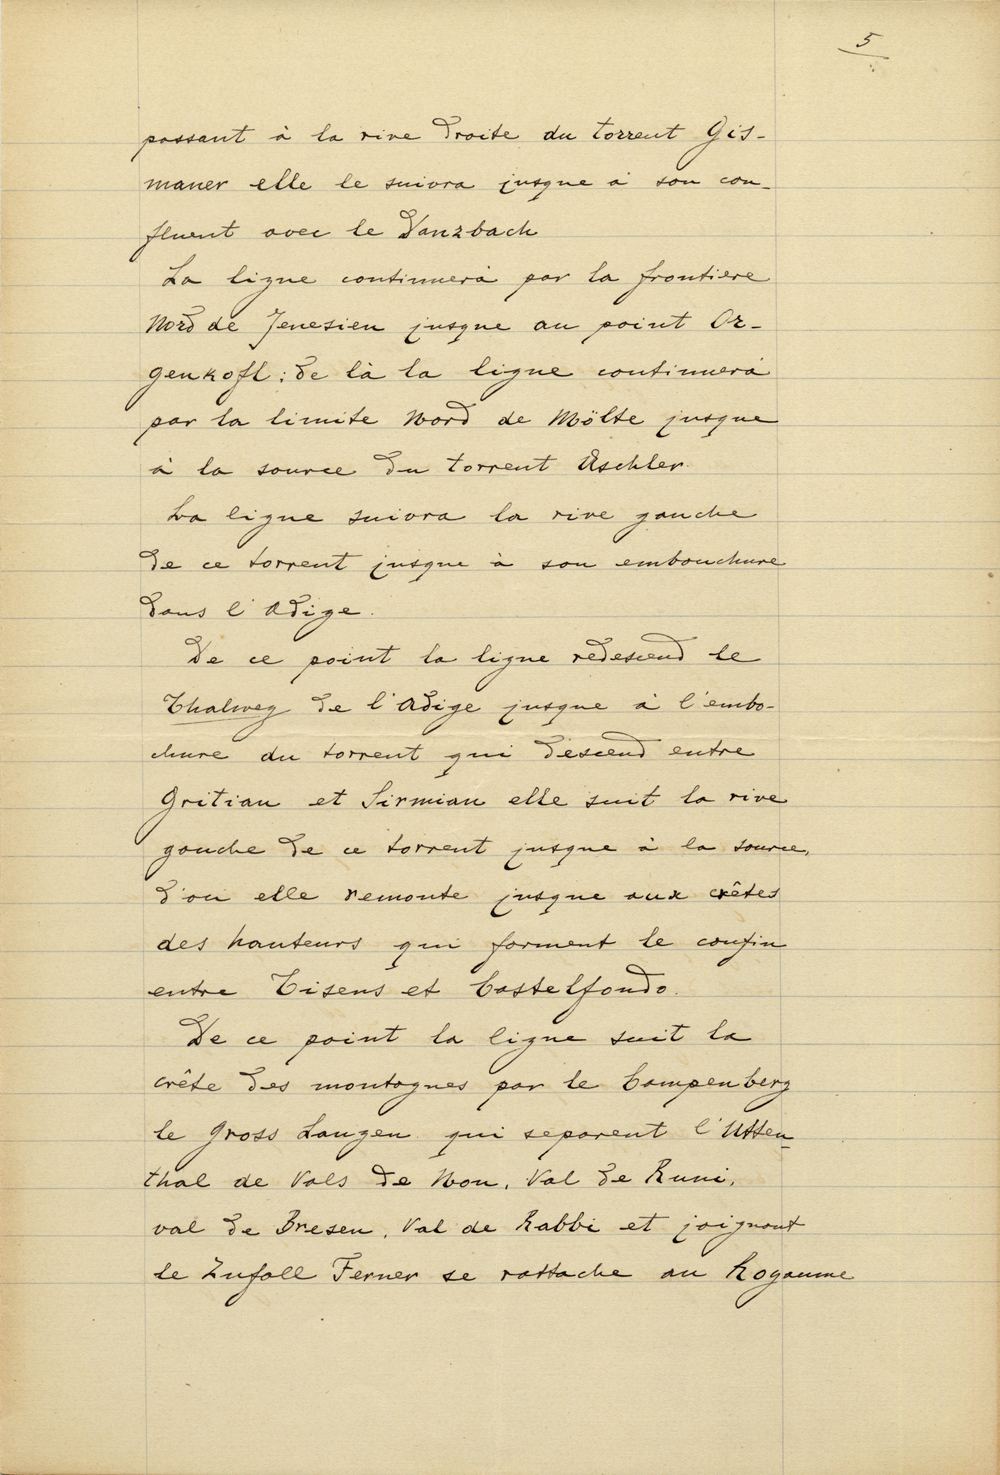 5
passant à la rive droite du torrent Gis-
maner elle le suivra jusque à son con-
fluent avec le Vanzbach
La ligne continuerà par la frontiere
Nord de Jenesien jusque au point Or-
genkofl : de là la ligne continuerà
par la limite Nord de Mölte jusque
à la source du torrent Aschler.
La ligne suivra la rive gauche
de ce torrent jusque à son embouchure
dans l'Adige.
De ce point la ligne redescend le
Thalweg de l'Adige jusque à l'embo-
chure du torrent qui descend entre
Gritian et Sirmian elle suit la rive
gauche de ce torrent jusque à la source,
d'ou elle remonte jusque aux crêtes
des hauteurs qui forment le confin
entre Tisens et Castelfondo.
De ce point la ligne suit la
crête des montagnes par le Campenberg
le Gross Laugen qui separent l'Utten-
thal de Vals de Non, Val de Runi,
val de Bresen, Val de Rabbi et joignant
le Zufall Ferner se rattache au Royaume